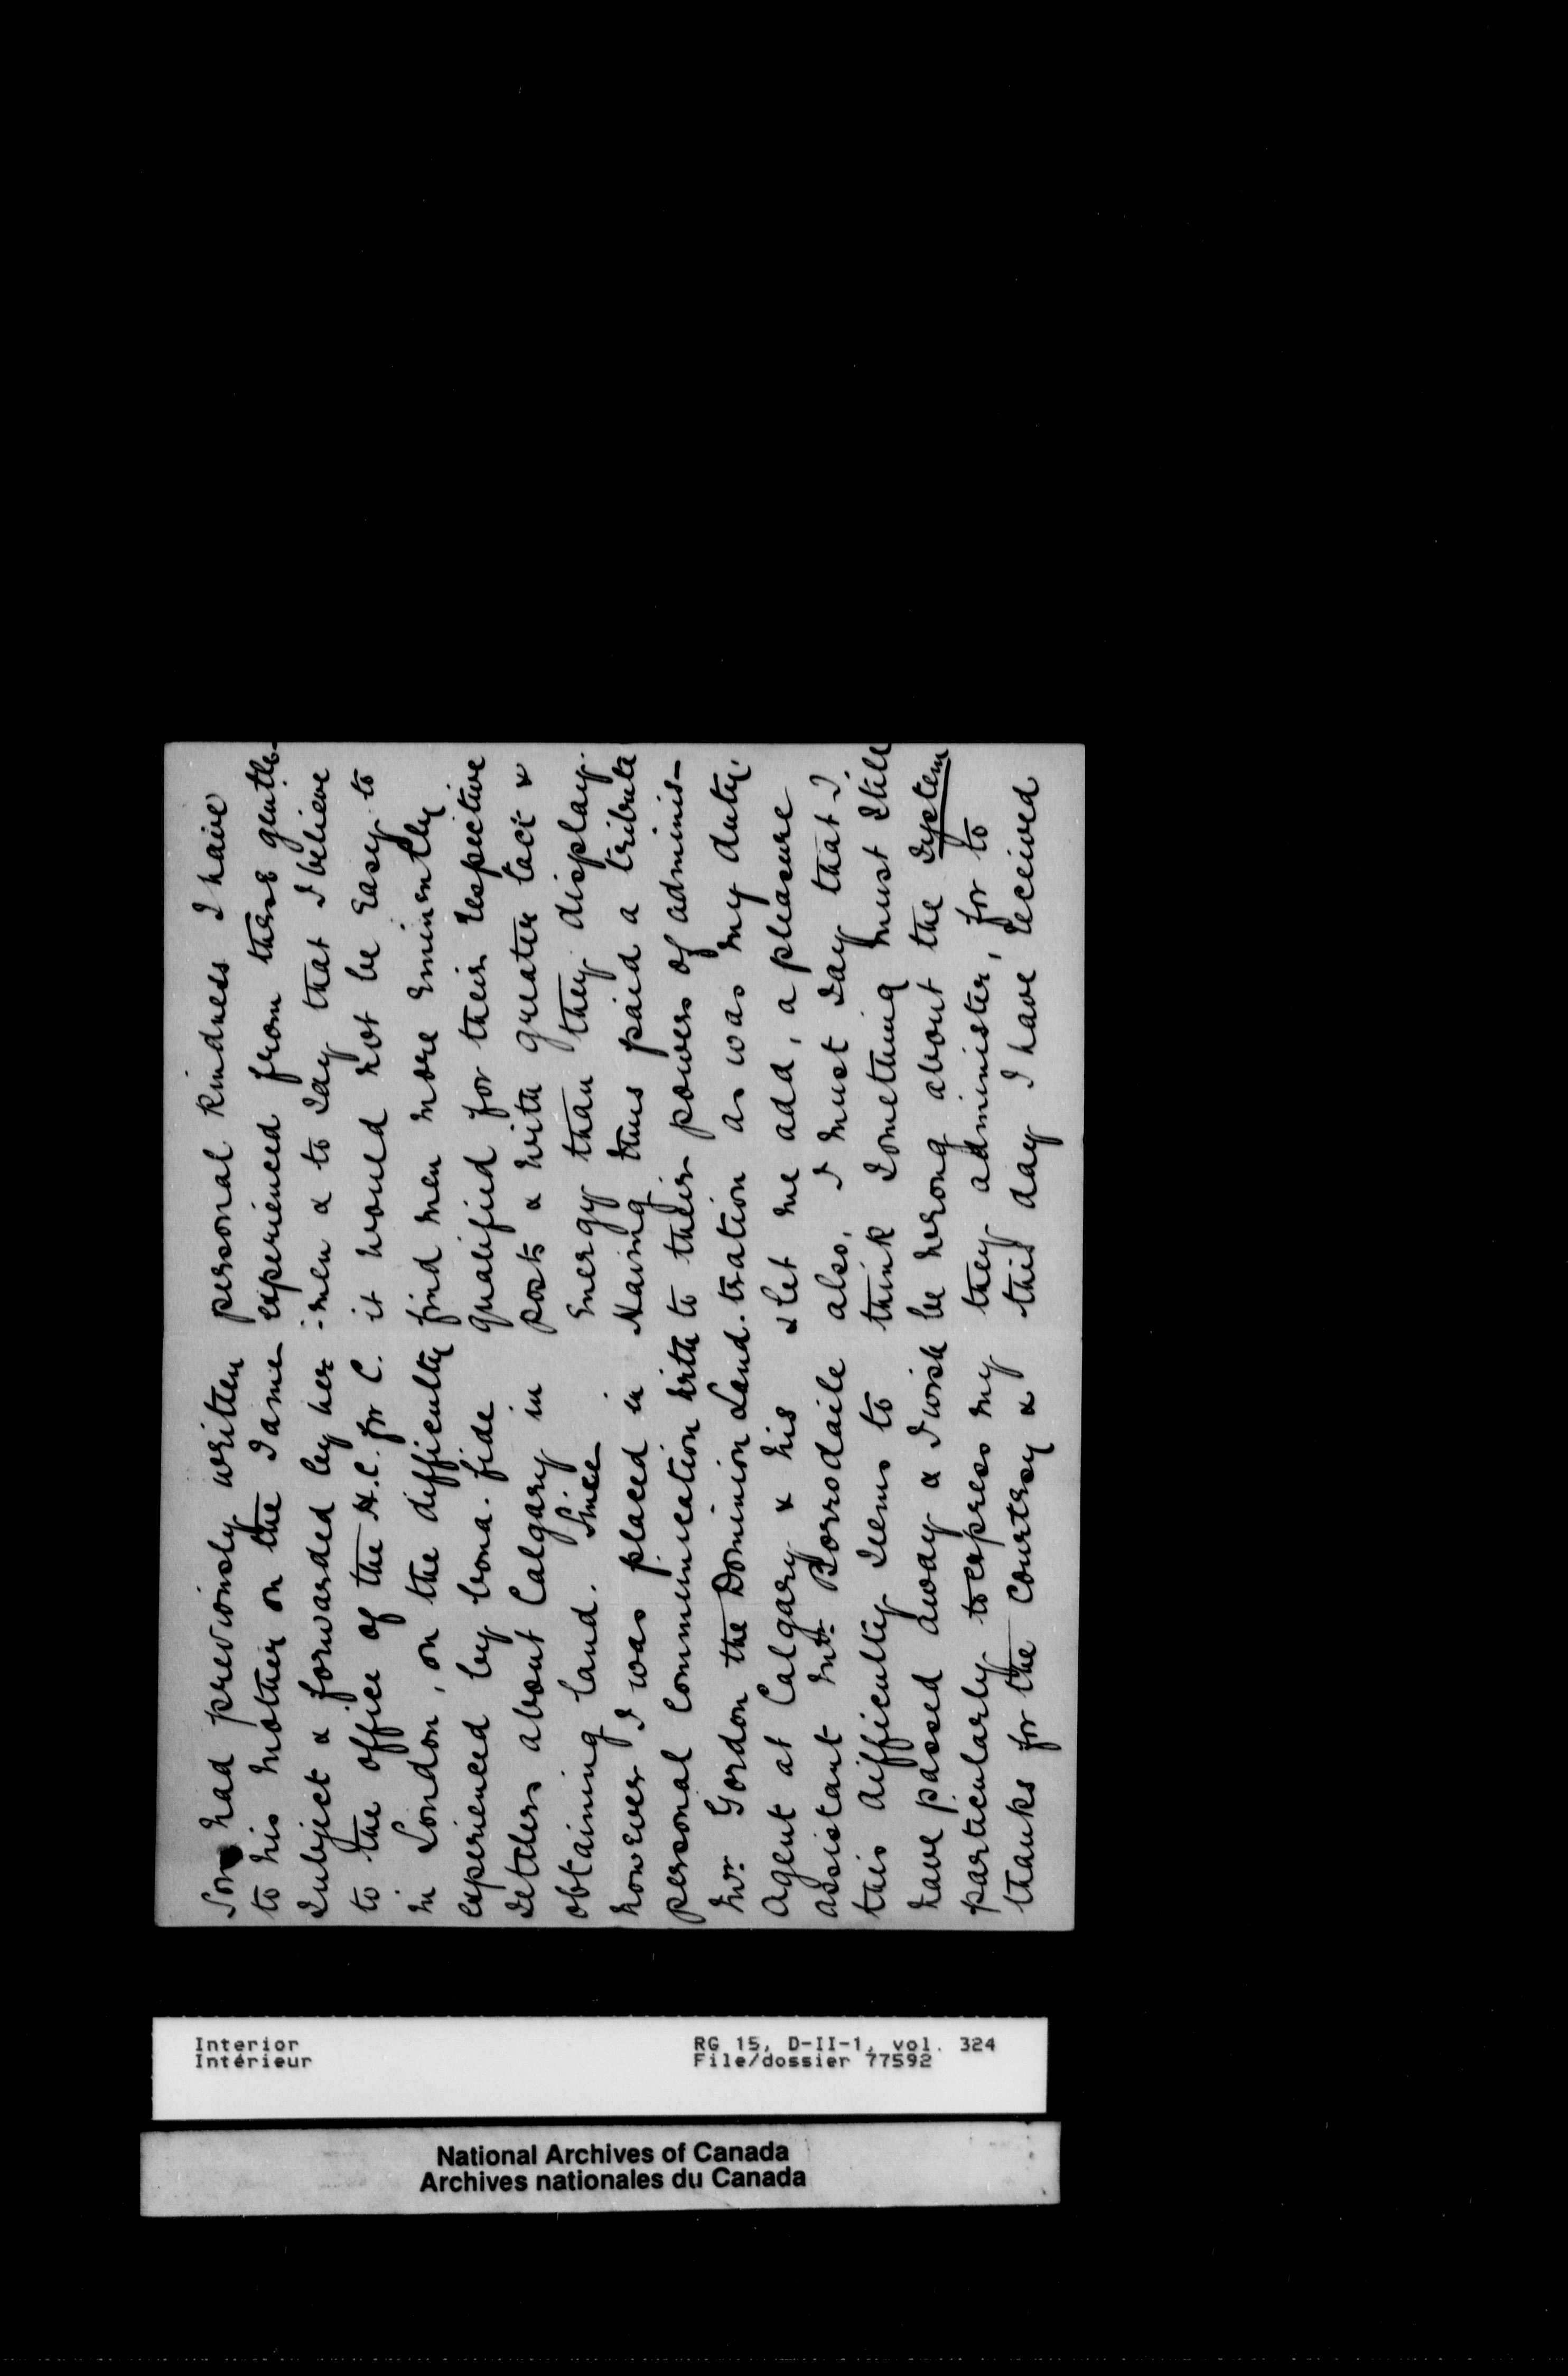 Son had previously written
to his mother on the same
subject & forwarded by her
to the office of the H.C. for C.
in London, on the difficulty
experienced by bona-fide
settlers about Calgary in
obtaining land. Since
however I was placed in
personal communication with
Mr. Gordon the Dominion Land
Agent at Calgary & his
assistant Mr. Borrodaile
this difficulty seems to
have passed away & I wish
particularly to express my
thanks for the courtesy &
personal kindness I have
experienced from these gentle-
-men & to say that I believe
it would not be easy to
find men more eminently
qualified for their respective
posts & with greater tact &
energy than they display.
Having thus paid a tribute
to their powers of adminis-
-tration as was my duty,
& let me add, a pleasure
also, I must say that I
think something must still
be wrong about the system
they administer, for to
this day I have received
Interior
Intérieur
RG 15, D-II-1, vol. 324
File/dossier 77592
National Archives of Canada
Archives nationales du Canada